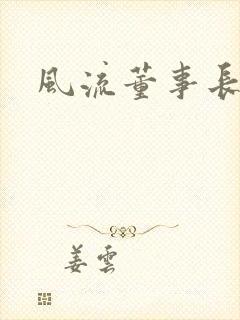 風流董事長
姜雲